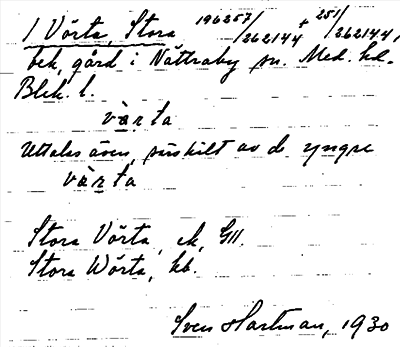 1 Vörta, Stora 196257/262144 + 251/262144,
bek. gård i Nättraby sn. Med. hd.
Blek. l.
vàrta
Uttalas även, särskilt av de yngre
vàrta
Stora Vörta, ek, GII.
Stora Wörta, kb.
Sven Hartman, 1930